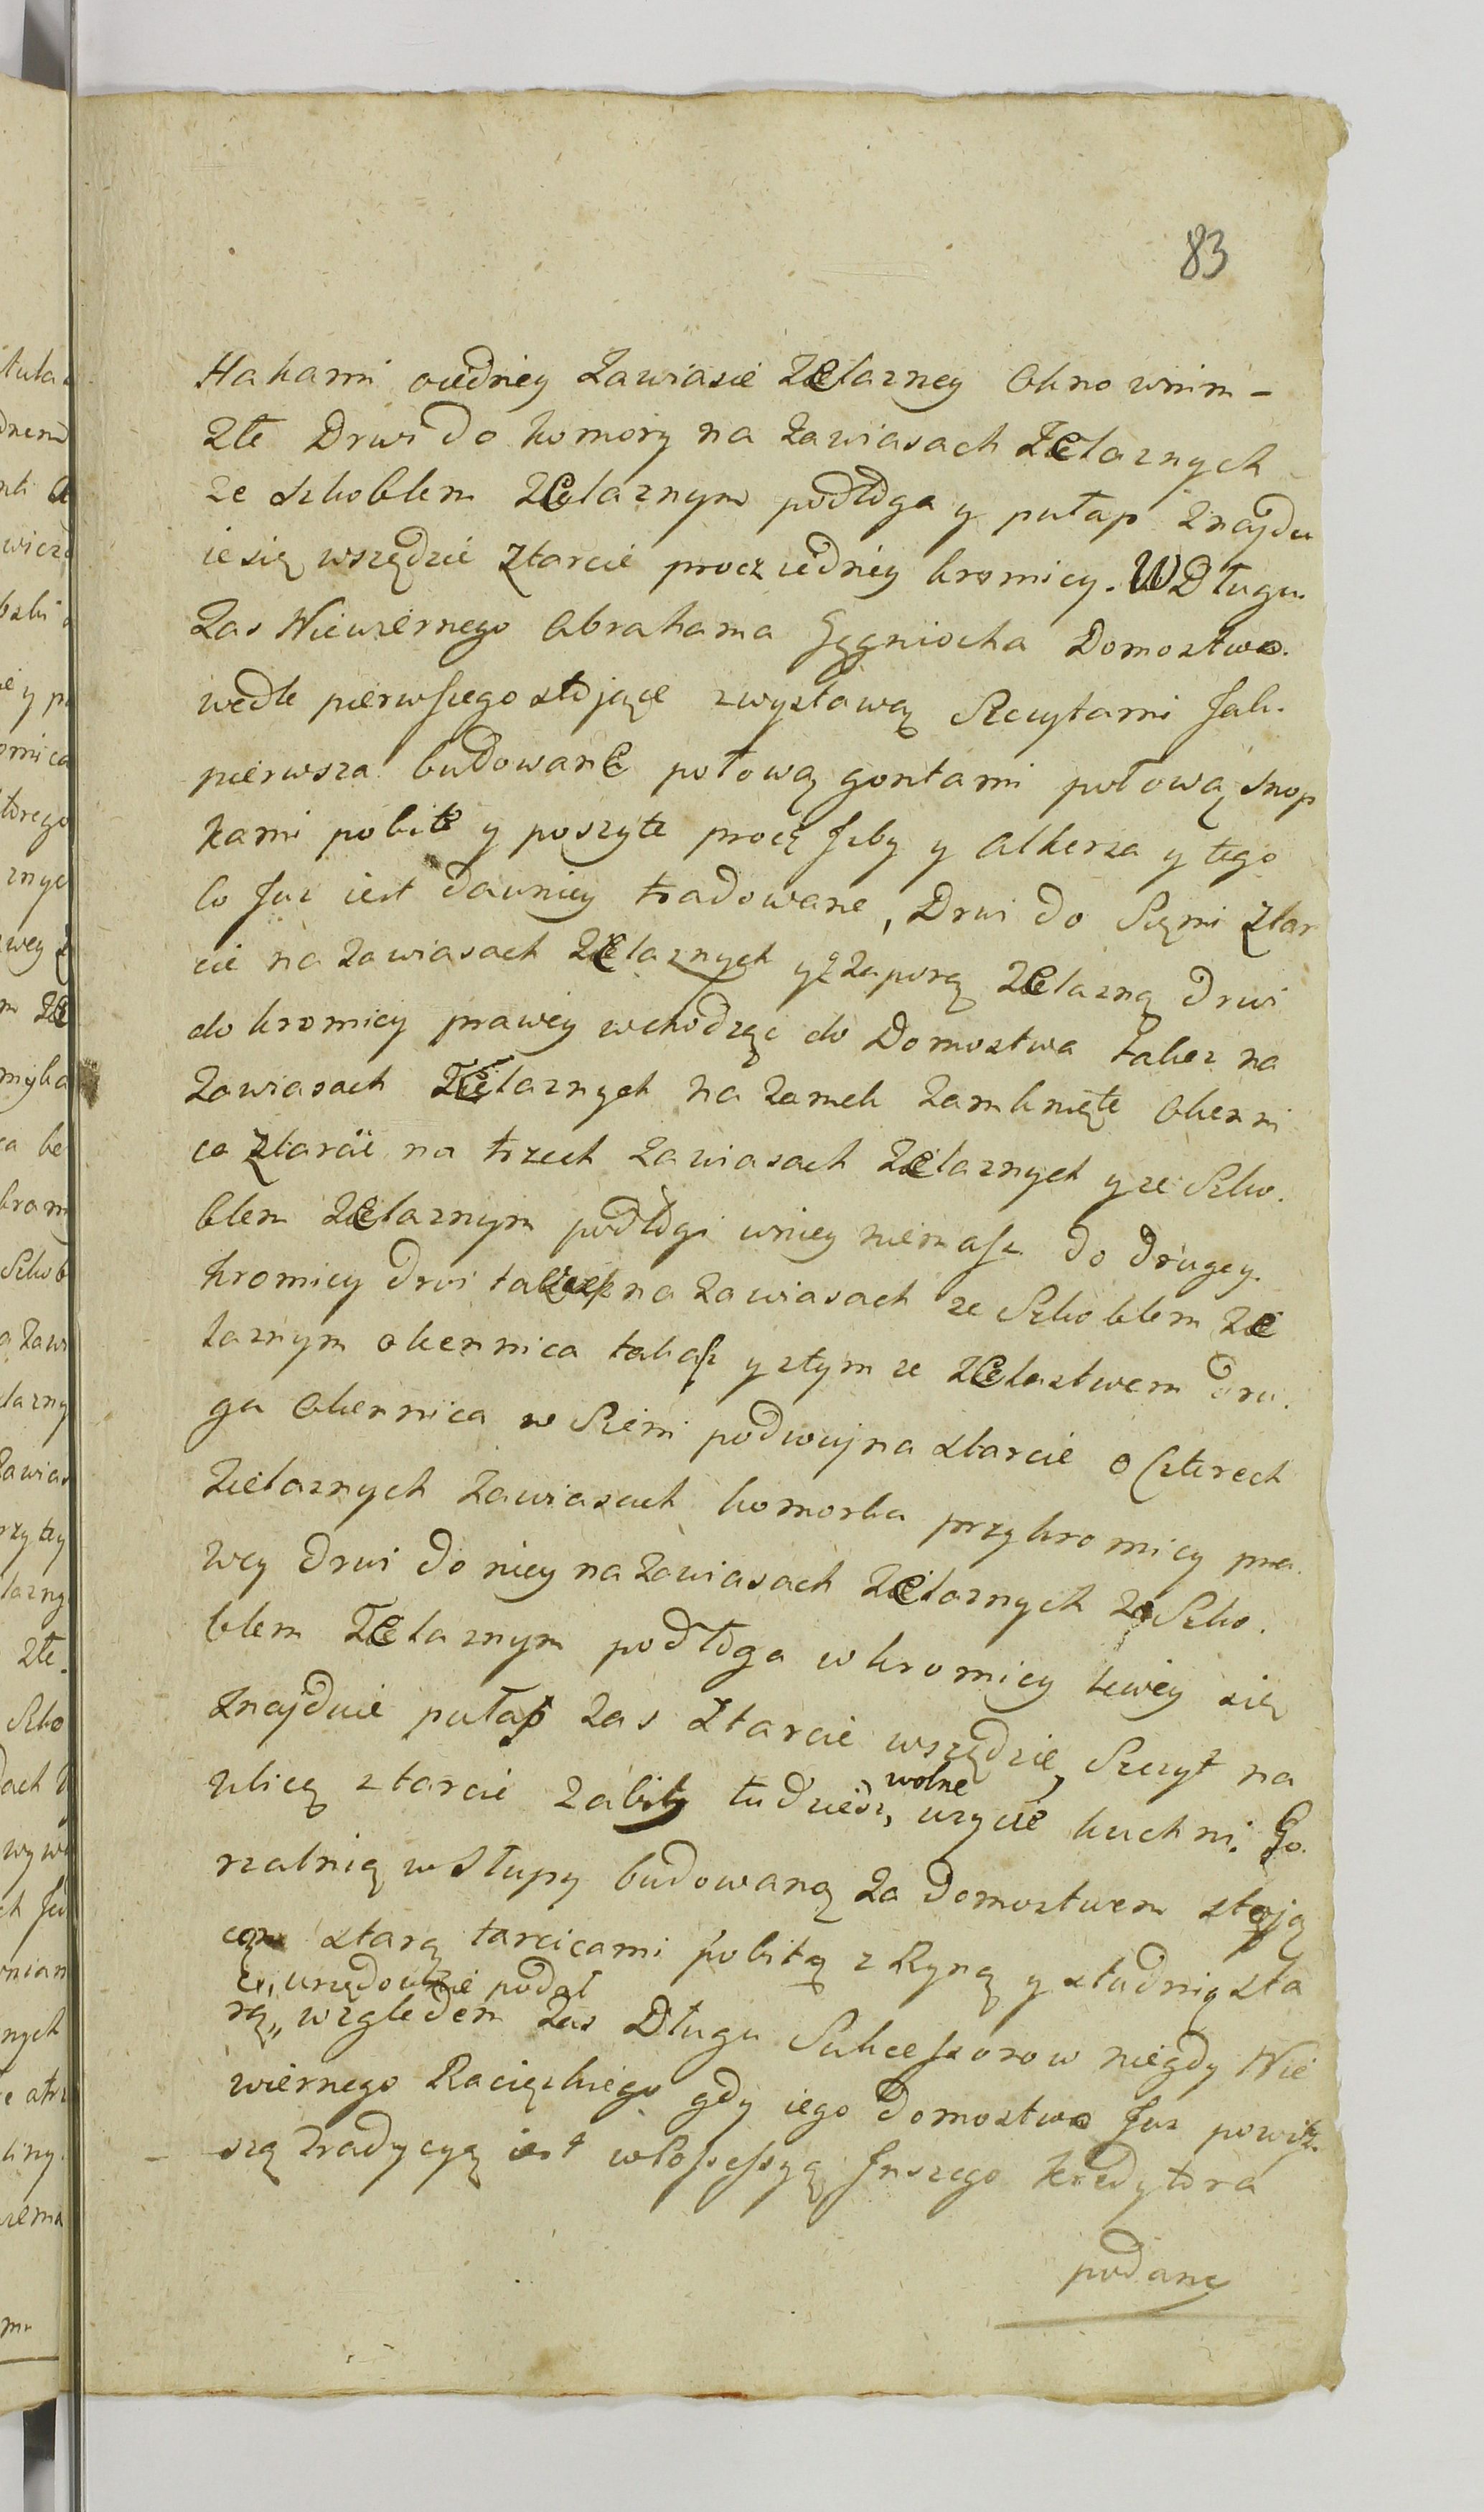 83
Hakami oiedney Zawiasie Zelazney Okno wnim -
Złe Drwi do komory na Zawiasach Zelaznych
ze Szkoblem Zelaznym podłoga y pułap Znajdu
iesię wszędzie Ztarcic procz iedney kromicy. W Długu
Zas Niewiernego Abrahama Domostwo.
wedle pierwszego stojące zwystawą Szczytami Jak.
pierwsza budowane połową gontami połową snop
kami pobite y poszyte procz Jzby y Alkerza y tego
co Juz iest dawniey tradowane, Drwi do Sięni Ztar
cic na Zawiasach Zelaznych y z Zaporą Zelazną Drwi
do kromicy prawey wchodząc do Domostwa takez na
Zawiasach Zelaznych na Zamek Zamknięte Okenni
ca Ztarcic na trzech Zawiasach Zelaznych y ze Szko.
blem Zelaznym podłogi wniey niemasz do drugey.
kromicy drwi na Zawiasach ze Szkoblem Ze
laznym okennica takasz y ztym ze Zelastwem dru.
ga Okennica w Sieni podwujna ztarcic o Czterech
Zielaznych Zawiasach komorka przykromicy pra.
wey drwi do niey na Zawiasach Zelaznych ze Szko.
blem Zelaznym podłoga wkromicy lewey się
Znajduie pułap Zas Ztarcic wszędzie, Szczyt na
Ulicę ztarcic Zabity tudziesz, wolne uzycie kuchni. Go.
rzalnią wSłupy budowaną Za Domostwem stoją
cą starą tarcicami pobitą z Ryną y studnią sta
urzędownie podał
rą,, względem Zas Długu Sukcessorow niegdy Nie
wiernego Racięzkiego gdy iego Domostwo Juz powiż.
szą Tradycyą iest wPossessyą Jnszego Kredytora
podane